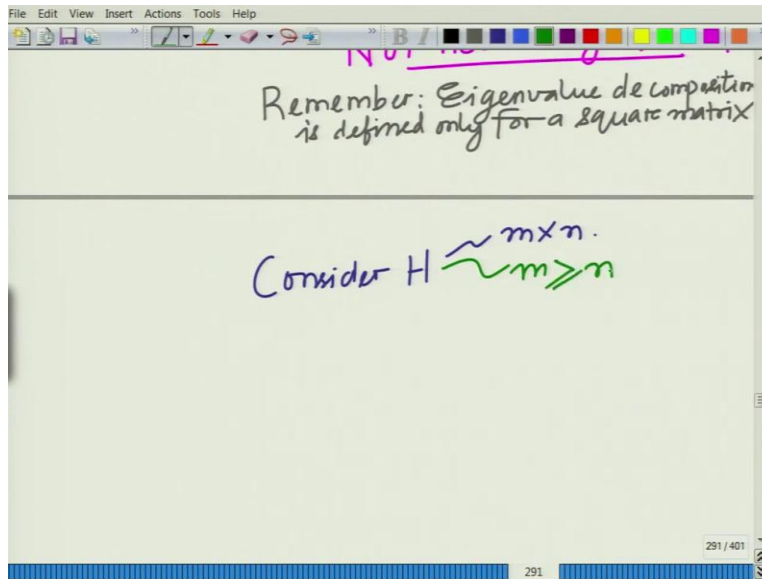 File Edit View Insert Actions Tools Help
B I
Remember: Eigenvalue decomposition
is defined only for a square matrix
Consider H m×n.
m≥n
291/401
291